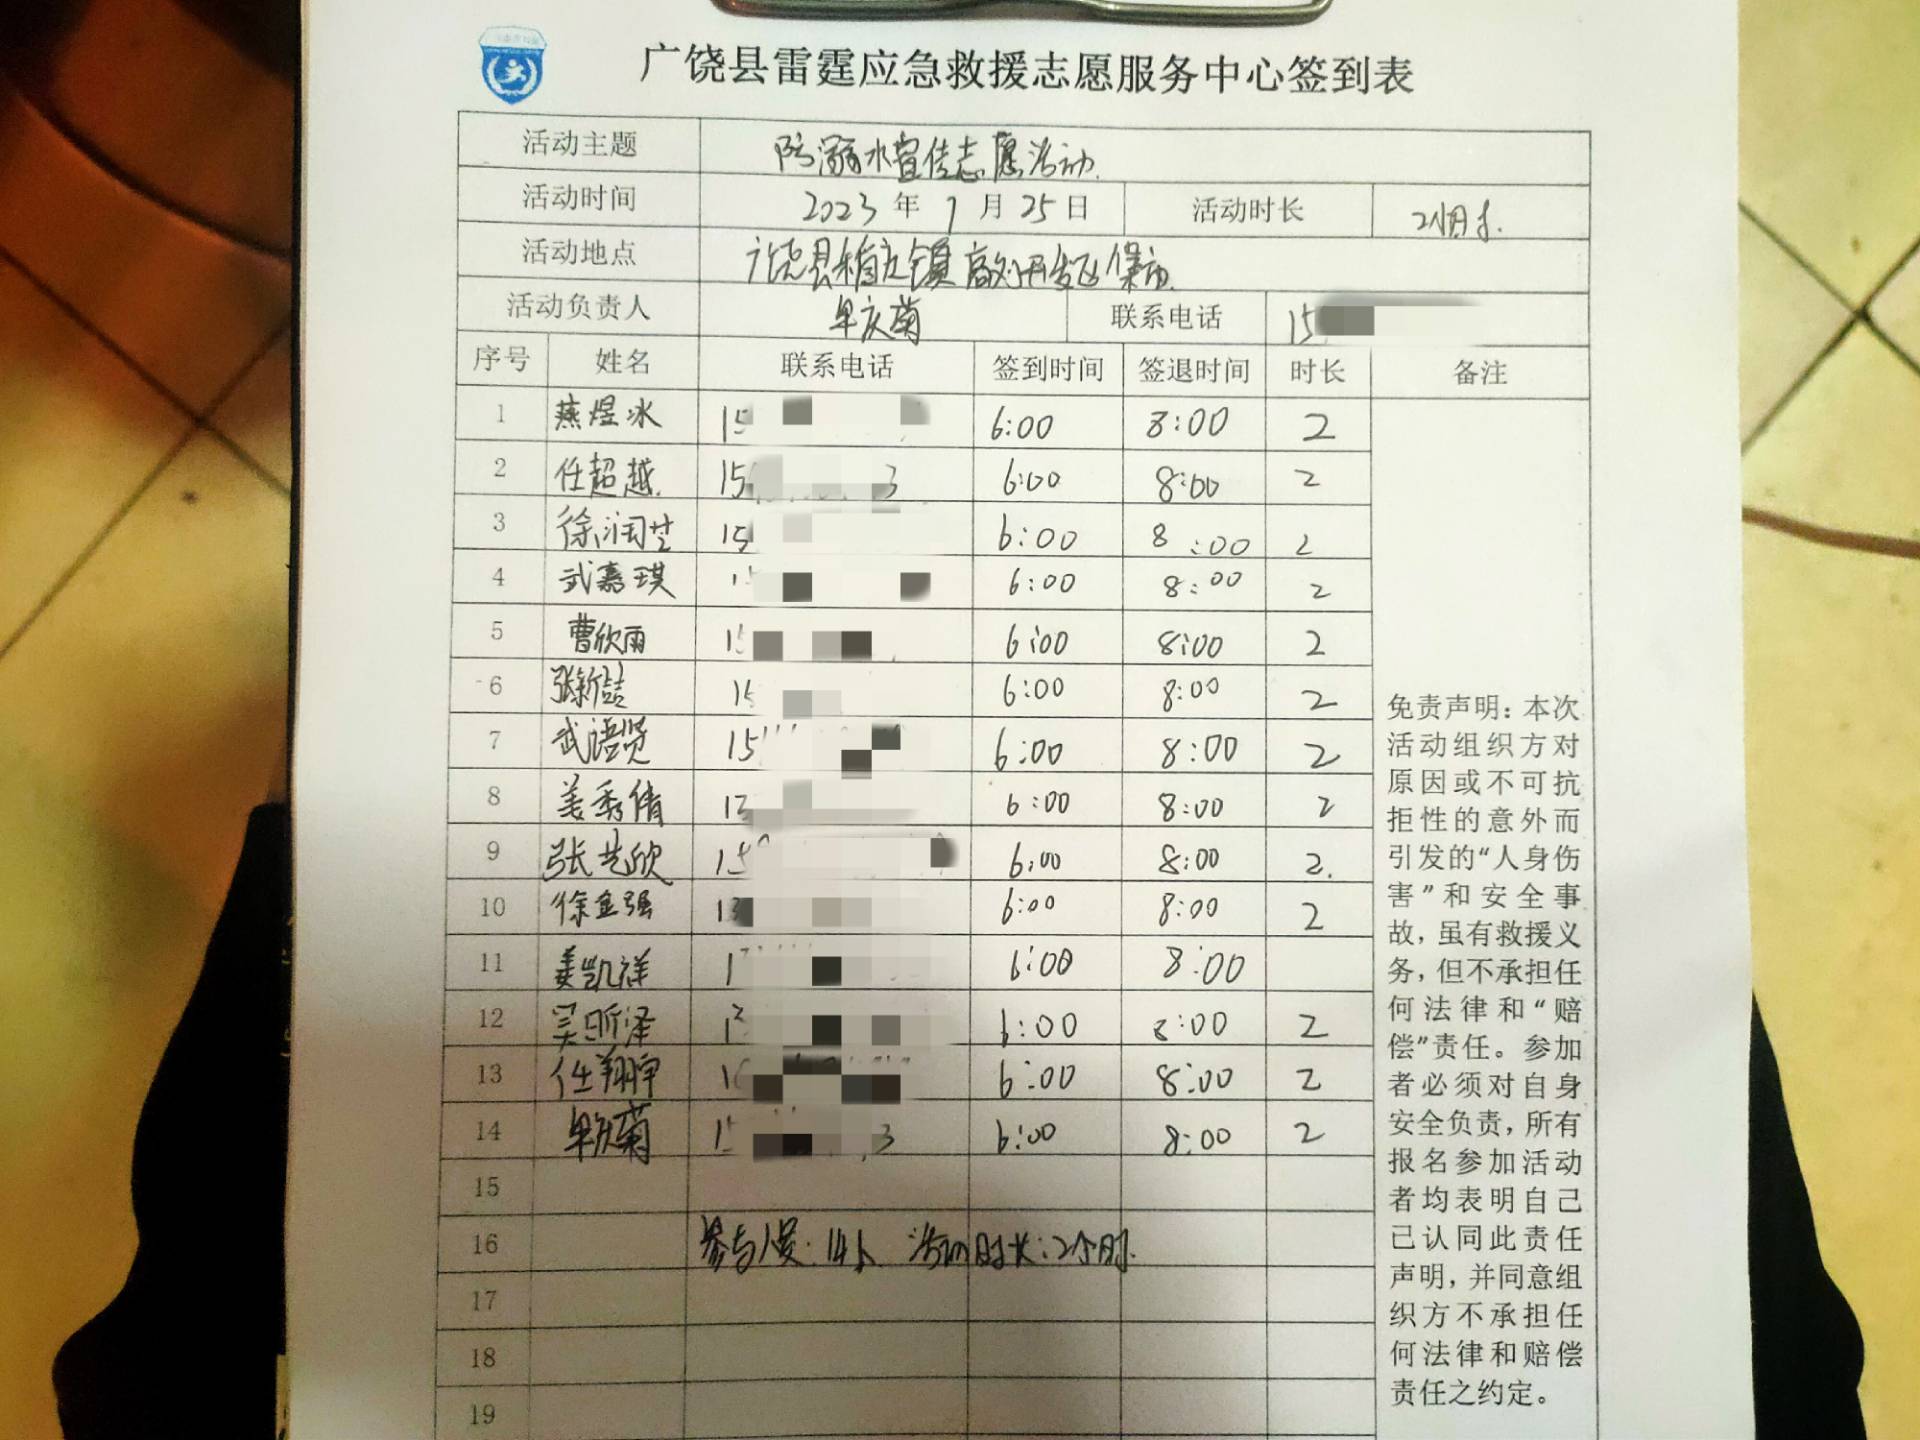 广饶县雷霆应急救援志愿服务中心签到表
活动主题 防溺水宣传志愿活动
活动时间 2023年7月25日 活动时长 2小时
活动地点 广饶县稻庄镇
活动负责人 联系电话 15
序号 姓名 联系电话 签到时间 签退时间 时长 备注
1 燕煜冰 15 6:00 8:00 2
2 任超越 15 3 6:00 8:00 2
3 徐润芝 15 6:00 8:00 2
4 武嘉琪 1 6:00 8:00 2
5 曹欣雨 15 6:00 8:00 2
6 张新喆 15 6:00 8:00 2
7 武语贤 15 6:00 8:00 2
8 姜秀倩 13 6:00 8:00 2
9 张艺欣 15 6:00 8:00 2
10 徐金强 13 6:00 8:00 2
11 姜凯祥 1 6:00 8:00
12 吴昕泽 1 6:00 8:00 2
13 任翔宇 1 6:00 8:00 2
14 1 3 6:00 8:00 2
15
16 参与人员:14人 活动时长:2个小时
17
18
19
免责声明:本次
活动组织方对
原因或不可抗
拒性的意外而
引发的“人身伤
害”和安全事
故,虽有救援义
务,但不承担任
何法律和“赔
偿”责任。参加
者必须对自身
安全负责,所有
报名参加活动
者均表明自己
已认同此责任
声明,并同意组
织方不承担任
何法律和赔偿
责任之约定。